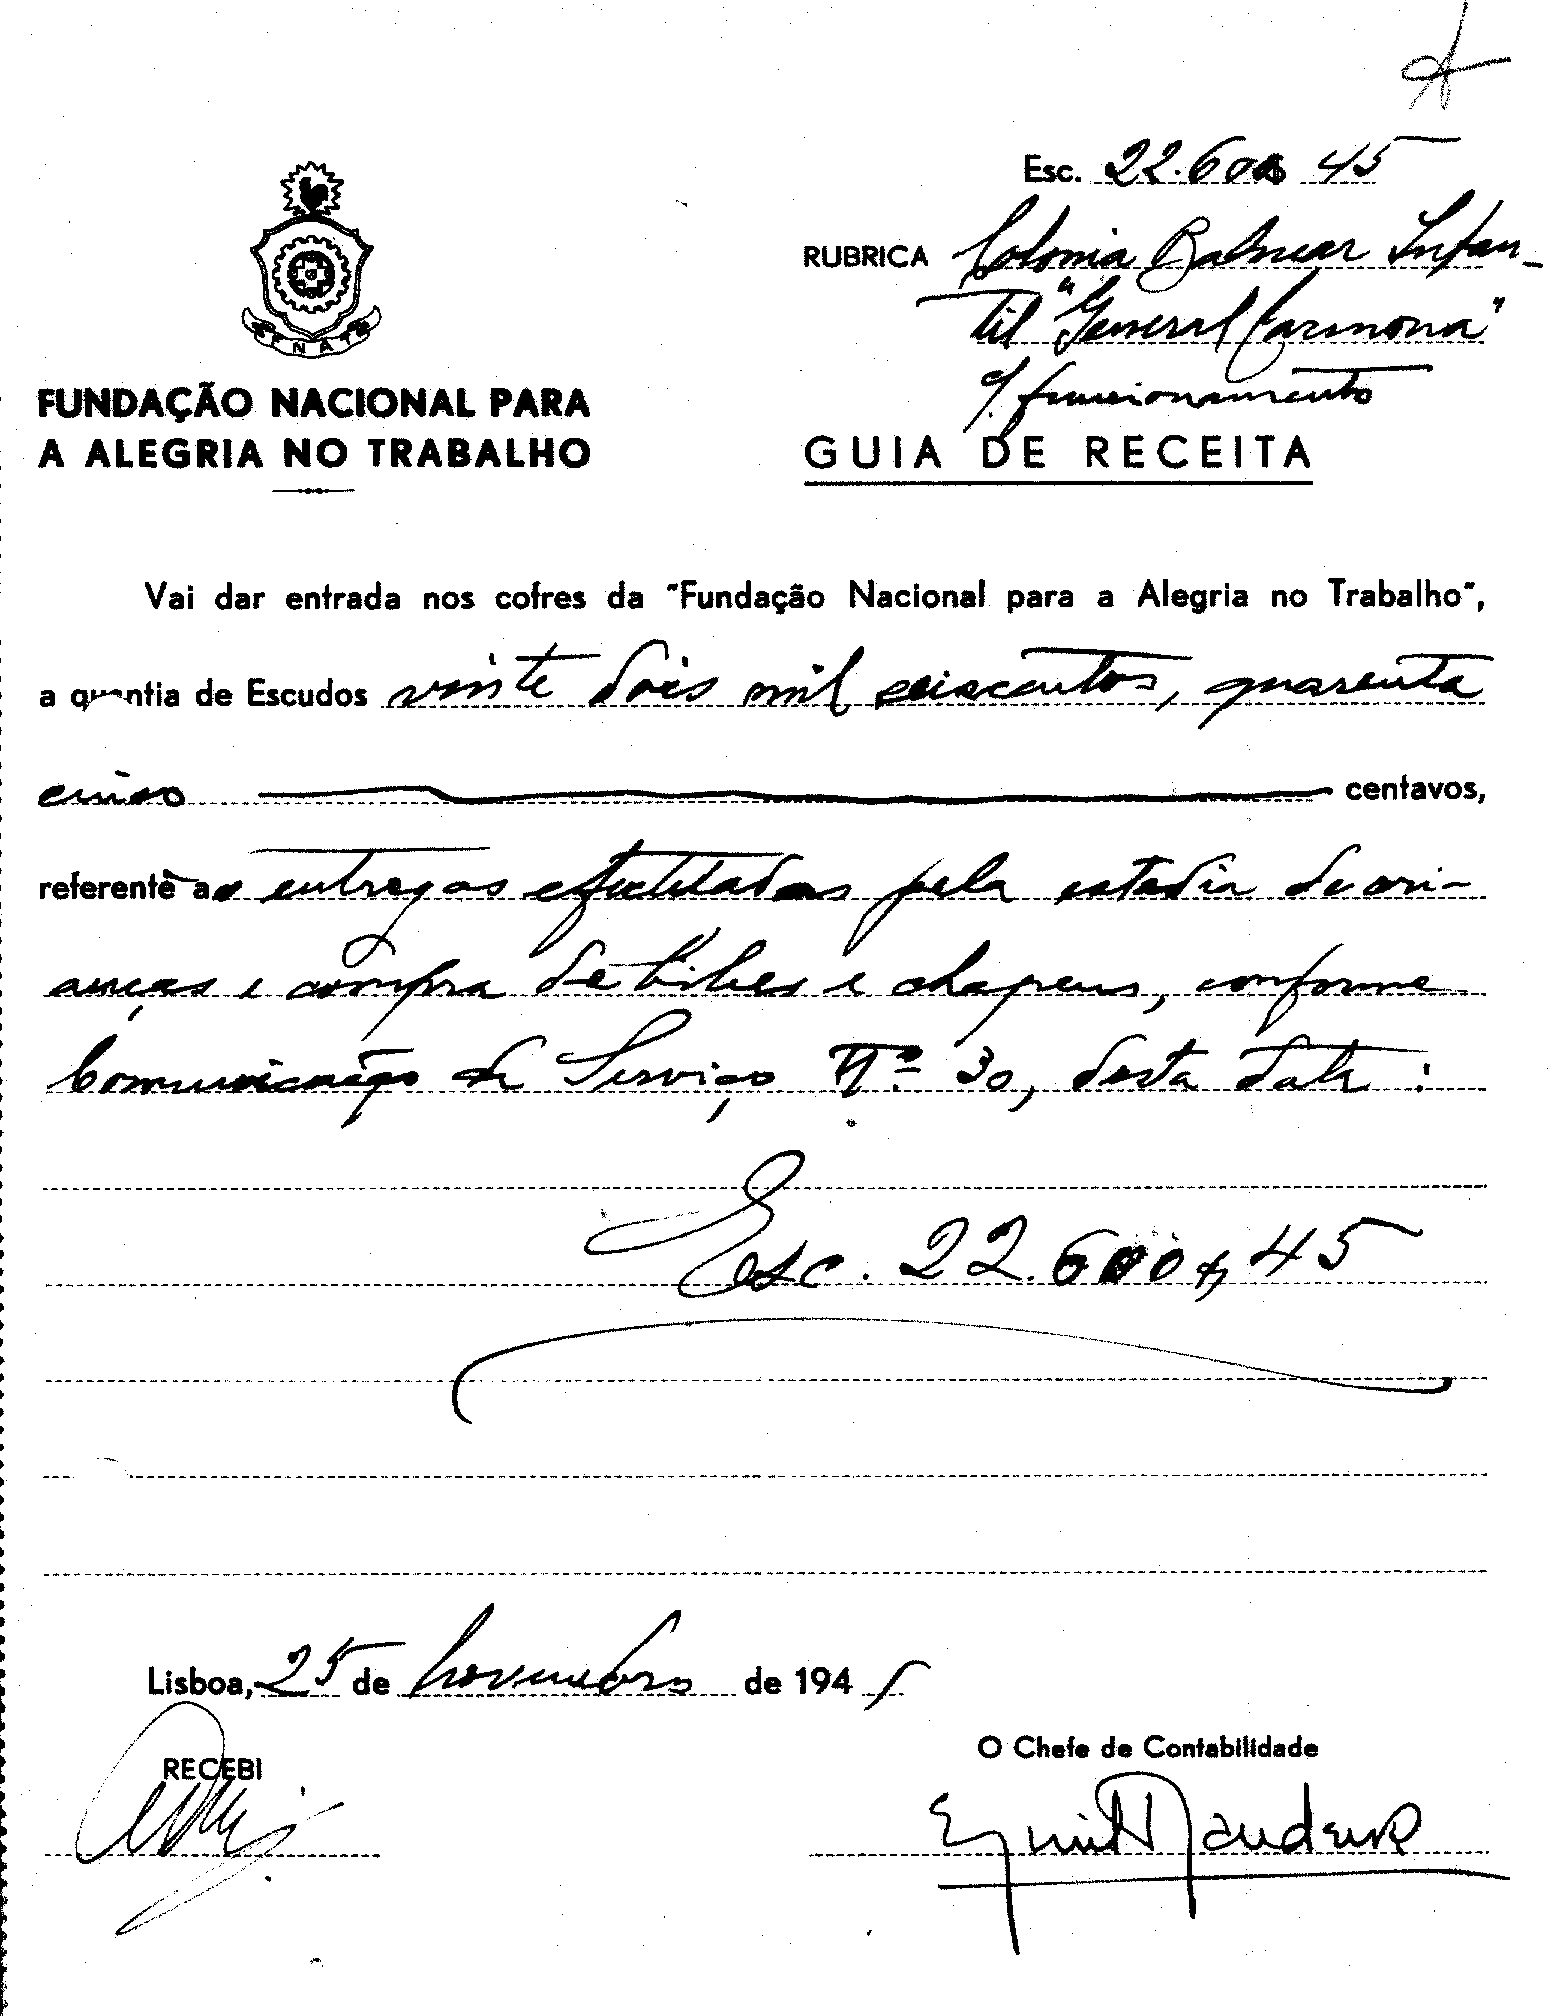 Esc. 22.600$45
RUBRICA Colonia Balnear Infan-
til "General Carmona"
c/ funcionamento
FNAT
FUNDAÇÃO NACIONAL PARA
A ALEGRIA NO TRABALHO
GUIA DE RECEITA
Vai dar entrada nos cofres da "Fundação Nacional para a Alegria no Trabalho",
a quantia de Escudos vinte dois mil seiscentos, quarenta
cinco centavos,
referente a entregas efectuadas pela estadia de cri-
anças e compra de bibes e chapeus, conforme
Comunicação de Serviço Nº 30, desta data:
Esc. 22.600$45
Lisboa, 25 de novembro de 194
RECEBI
O Chefe de Contabilidade